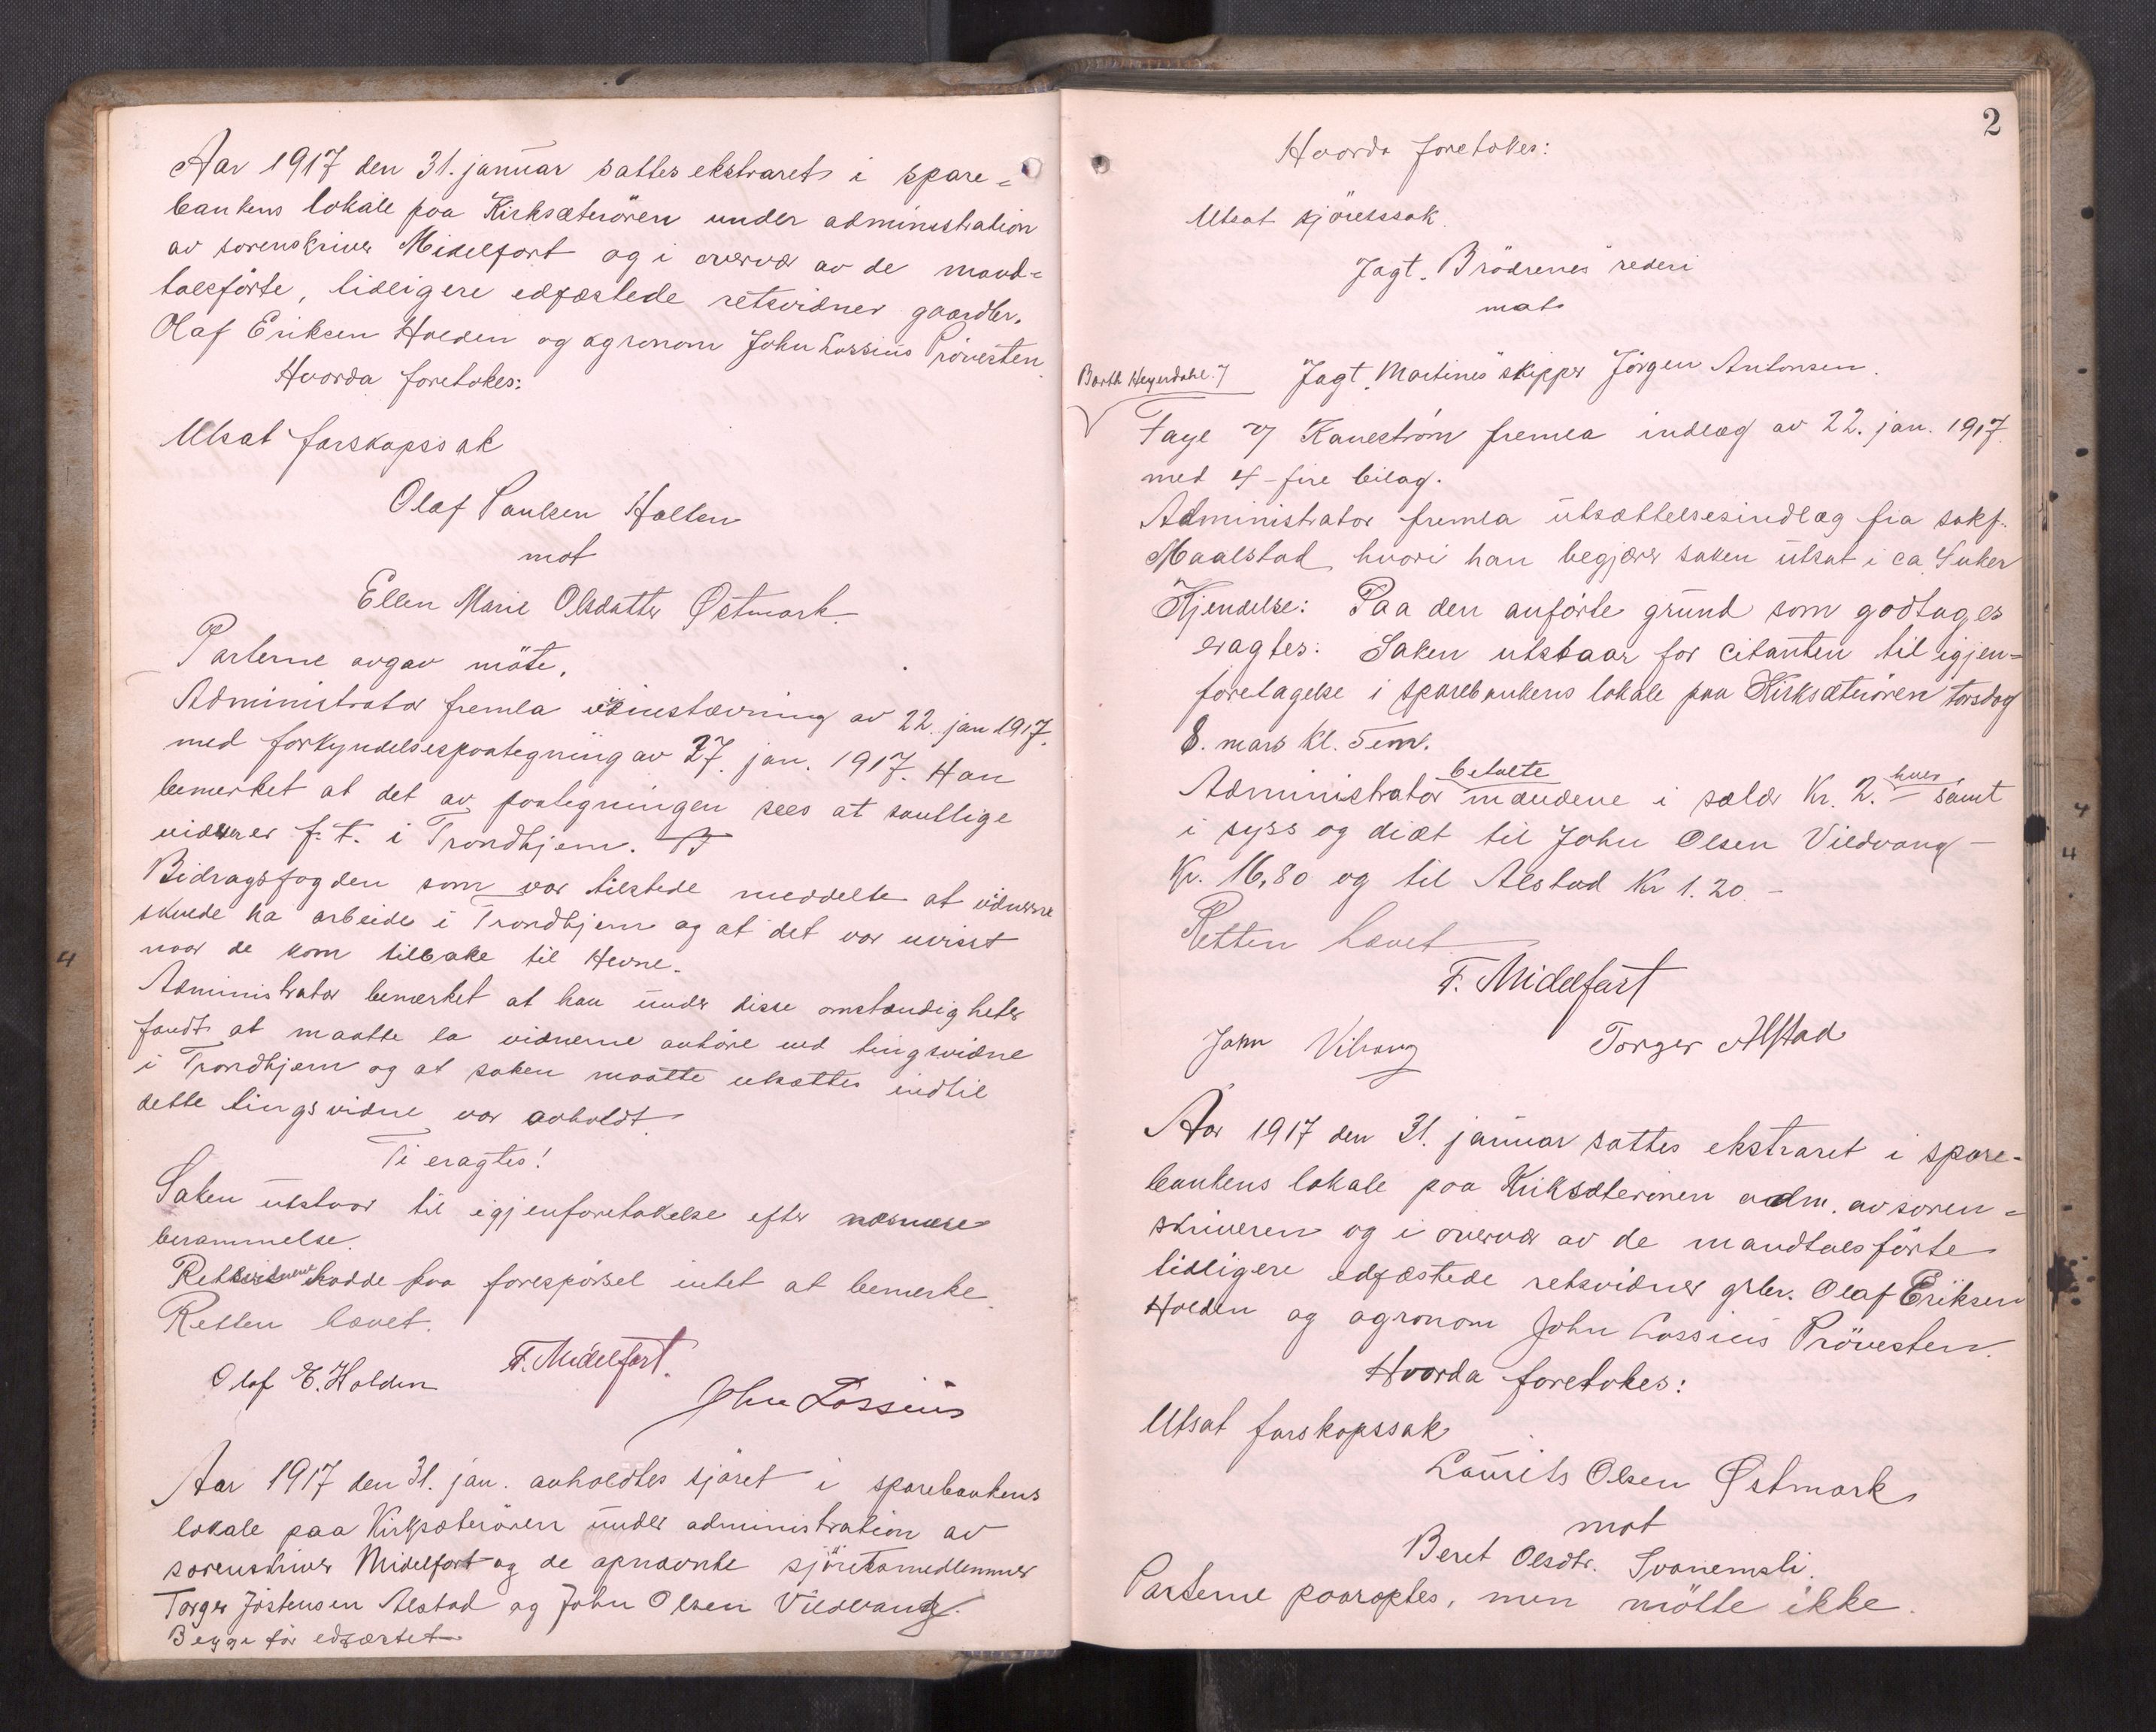 Aar 1917 den 31. januar sattes ekstraret i spare=
bankens lokale paa Kirksæterören under administration
av sorenskriver Midelfart og i overvær av de mand=
talsförte, tidligere edfæstede retsvidner gaardbr.
Olaf Eriksen Holden og agronom John Lossius Prövesten.
Hvorda foretokes:
Utsat farskapssak
Olaf Paulsen Hallen
mot
Ellen Marie Olsdatter Østmark.
Parterne avgav möte.
Administrator fremla vidnestævning av 22. jan 1917.
med forkyndelsespaategning av 27. jan. 1917. Han
bemerket at det av paategningen sees at samtlige
vidner f. t. i Trondhjem.
Bidragsfogden som var tilstede meddelte at vidnerne
skulde ha arbeide i Trondhjem og at det var uvisst
naar de kom tilbake til Hevne.
Administrator bemerket at han under disse omstændigheter
fandt at maatte la vidnerne avhöre ved tingsvidne
i Trondhjem og at saken maatte utsættes indtil
dette tingsvidne var avholdt.
Ti eragtes!
Saken utstaar til igjenforetakelse efter nærmere
berammelse.
Retsvidnene hadde paa forespörsel intet at bemerke.
Retten hævet.
F. Midelfart.
Olaf E. Holden
John Lossius
Aar 1917 den 31. jan. avholdtes sjöret i sparebankens
lokale paa Kirksæterören under administration av
sorenskriver Midelfart og de opnævnte sjöretsmedlemmer
Torger Jostensen Alstad og John Olsen Vildvang.
Begge för edfæstet.
2
Hvorda foretokes:
Utsat sjöretssak.
Jagt „Brödrenes" rederi
mot
Barth Heyerdahl. 7
Jagt „Martines" skipper Jörgen Antonsen.
Faye v/ Kaneström fremla indlæg av 22. jan. 1917
med 4 - fire bilag.
Administrator fremla utsættelsesindlæg fra sakf.
Maalstad, hvori han begjærer saken utsat i ca 4 uker
Kjendelse: Paa den anförte grund som godtages
eragtes: Saken utstaar for citanten til igjen=
foretagelse i sparebankens lokale paa Kirksæterören torsdag
8. mars kl. 5 em.
Administrator betalte mændene i salær Kr. 2. - hver, samt
i skyss og diæt til John Olsen Vildvang -
Kr. 16,80 og til Alstad Kr 1.20 -
Retten hævet
F. Midelfart
John Vilvang
Torger Alstad
Aar 1917 den 31. januar sattes ekstraret i spare-
bankens lokale paa Kirksæterören adm. av soren=
skriveren og i overvær av de mandtalsförte
tidligere edfæstede retsvidner grbr. Olaf Eriksen
Holden og agronom John Lossius Prövesten.
Hvorda foretokes:
Utsat farskapssak
Laurits Olsen Østmark
mot
Beret Olsdtr. Svanemsli.
Parterne paaroptes, men mötte ikke.
4
4
4